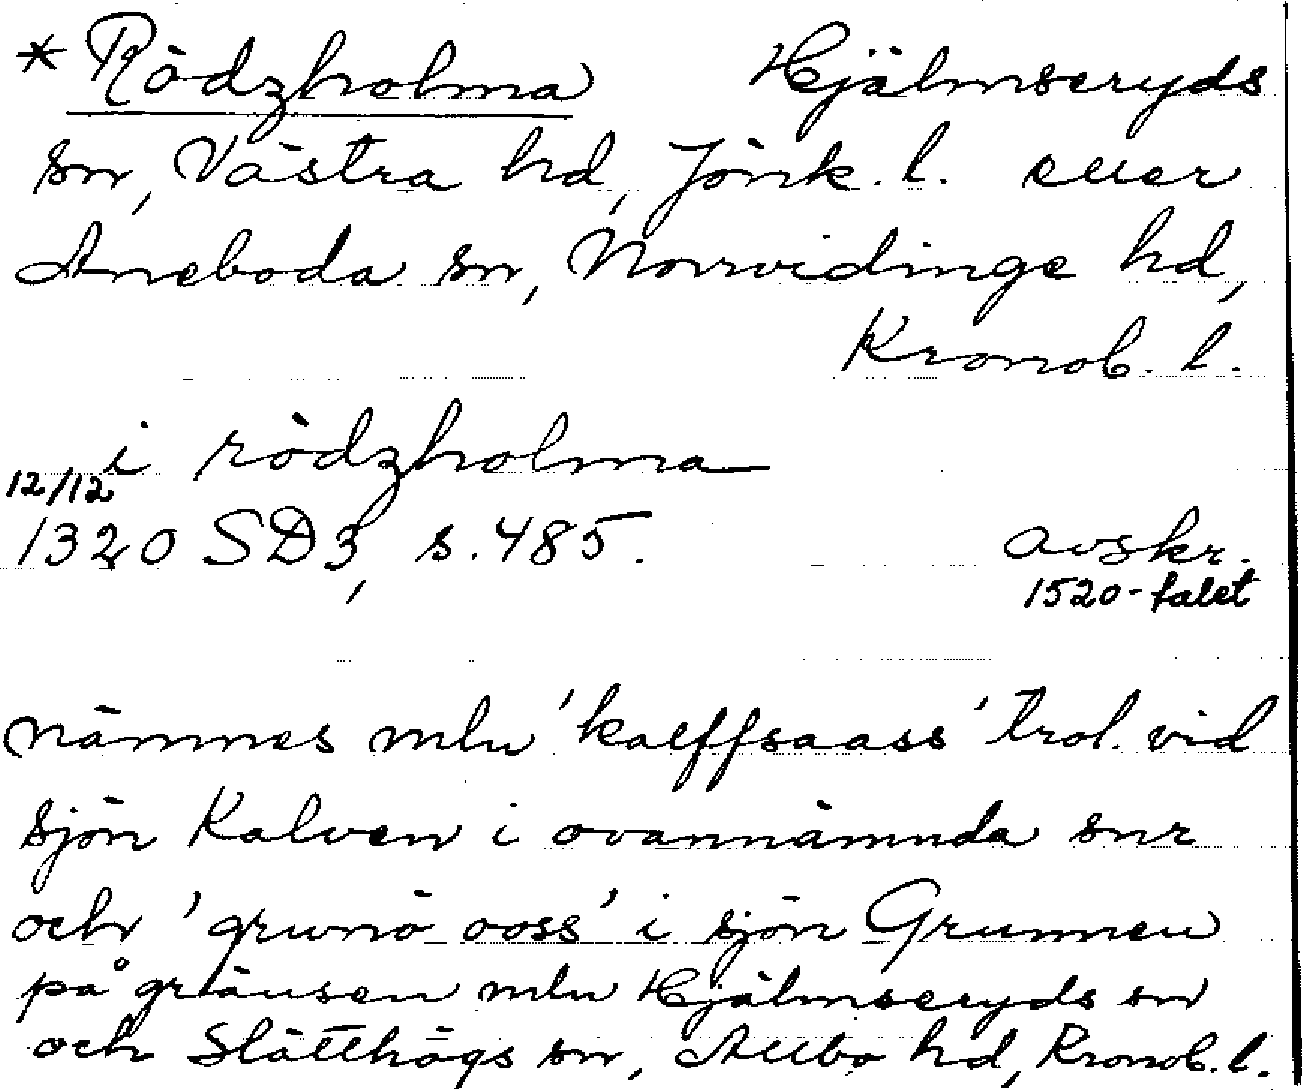 * Rödzholma Hjälmseryds
sn, Västra hd, Jönk. l. eller
Aneboda sn, Norrvidinge hd,
Kronob. l.
i rödzholma
12/12
1320 SD3, s. 485. avskr.
1520-talet
nämnes mln 'kalffsaass' trol. vid
sjön Kalven i ovannämnda snr
och 'grunö ooss' i sjön Grunnen
på gränsen mln Hjälmseryds sn
och Slätthögs sn, Allbo hd, Kronob. l.